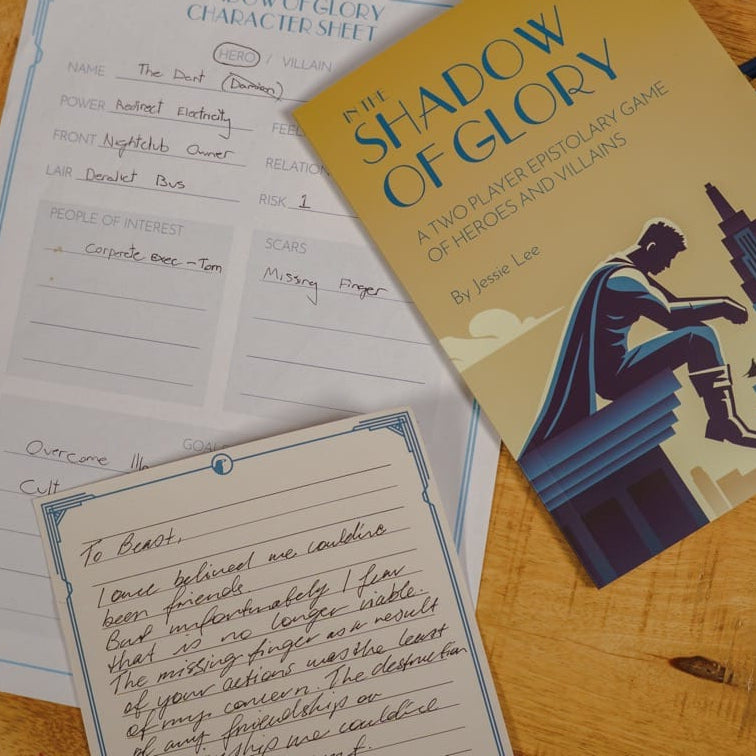 SHADOW OF GLORY
CHARACTER SHEET
HERO / VILLAIN
NAME The Dart (Damien)
POWER Redirect Electricity
FEEL
FRONT Nightclub Owner
RELATION
LAIR Derelict Bus
RISK 1
PEOPLE OF INTEREST
Corporate Exec - Tom
SCARS
Missing Finger
GOAL
Overcome
Cult
IN THE
SHADOW
OF GLORY
A TWO PLAYER EPISTOLARY GAME
OF HEROES AND VILLAINS
By Jessie Lee
To Beast,
I once believed we could've
been friends
But unfortunately I fear
that is no longer viable.
The missing finger as a result
of your actions was the least
of my concern. The destruction
of any friendship or
we could've